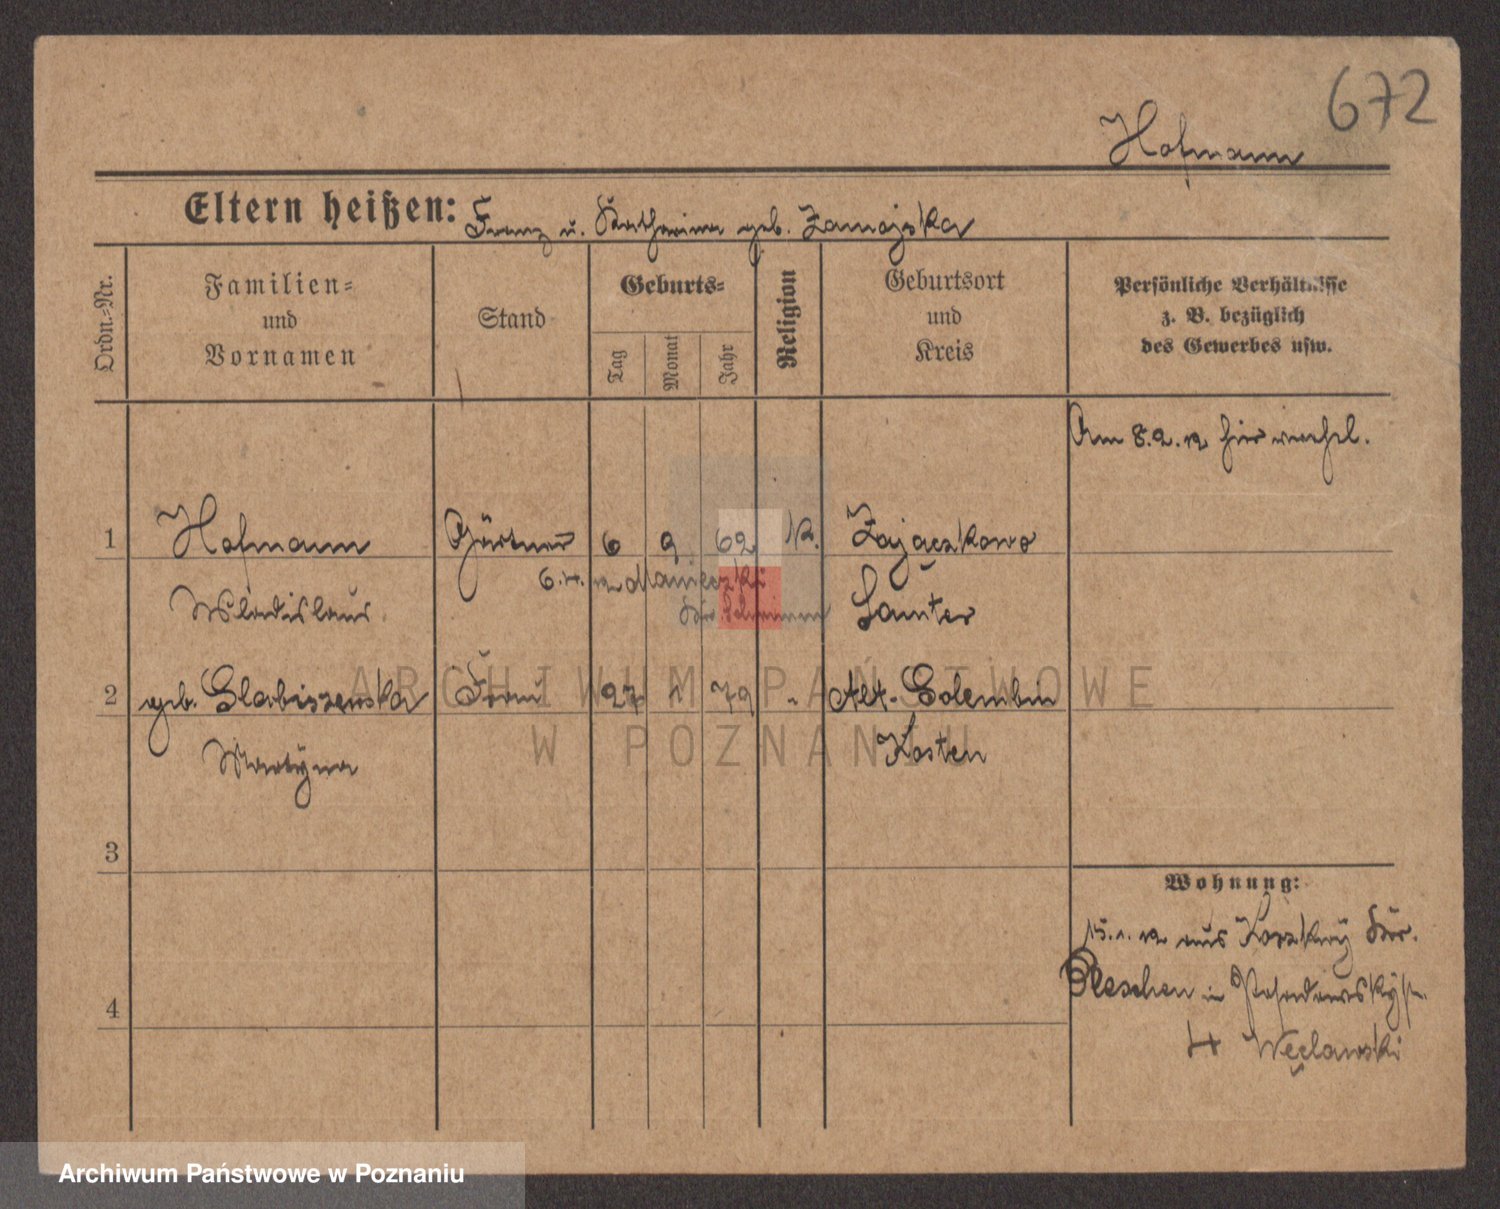 672
Hofmann
Eltern heißen: Franz u. Katharina geb. Zamojska
Ordn.-Nr.
Familien-
und
Vornamen
Stand
Geburts-
Tag
Monat
Jahr
Religion
Geburtsort
und
Kreis
Persönliche Verhältnisse
z. B. bezüglich
des Gewerbes usw.
Am 8.2.12 hier
1 Hofmann Gärtner 6 9 62 K. Zajączkowo
6.4.12 Manieczki
Kr. Schrimm
Wladislaus Samter
2 geb. Glabiszewska Frau 27 1 79 " Alt-Golembin
Martyna Kosten
3
4
Wohnung:
15.1.12 aus Koszkowy Kr.
Pleschen in
4 Węclawski
ARCHIWUM PAŃSTWOWE
W POZNANIU
Archiwum Państwowe w Poznaniu